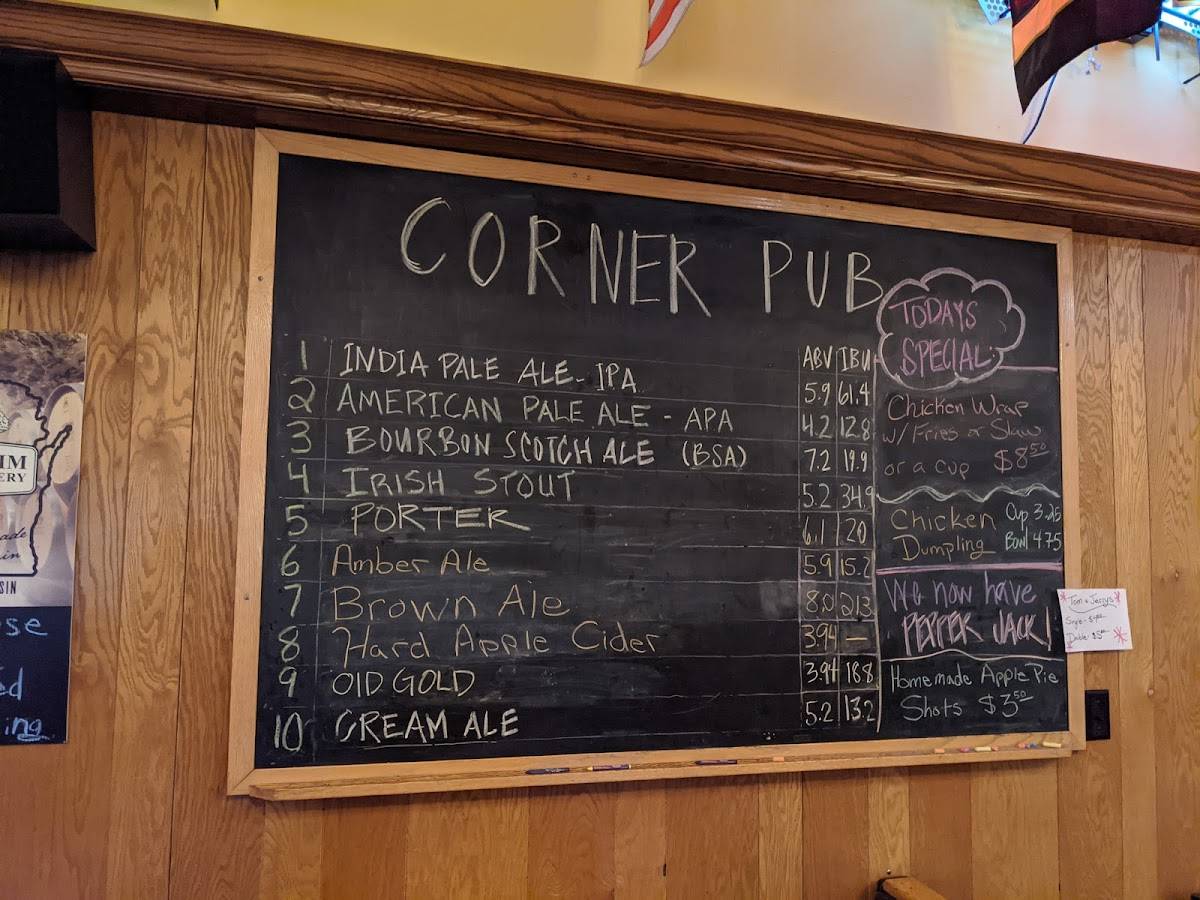 CORNER PUB
ABV IBU
1 INDIA PALE ALE - IPA 5.9 61.4
2 AMERICAN PALE ALE - APA 4.2 12.8
3 BOURBON SCOTCH ALE (BSA) 7.2 19.9
4 IRISH STOUT 5.2 34.9
5 PORTER 6.1 20
6 Amber Ale 5.9 15.2
7 Brown Ale 8.0 21.3
8 Hard Apple Cider 3.94 —
9 OlD GOLD 3.94 18.8
10 CREAM ALE 5.2 13.2
TODAYS
SPECIAL:
Chicken Wrap
w/ Fries or Slaw
or a cup $8.50
Chicken Cup 3.25
Dumpling Bowl 4.75
We now have
PEPPER JACK!
Homemade Apple Pie
Shots $3.50
Tom & Jerrys
IM
ERY
ade
in
SIN
se
d
ing